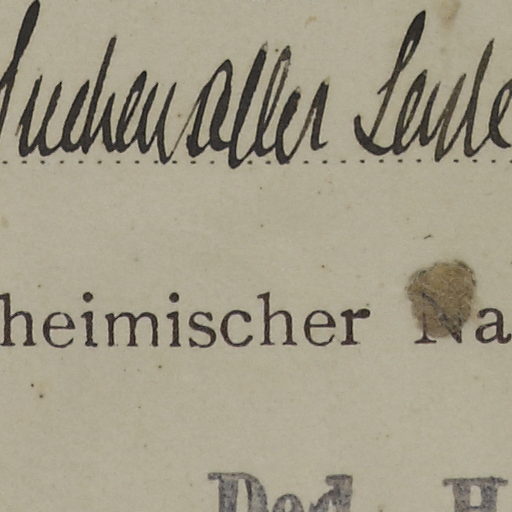 aller Leute
heimischer Na
Ded. H